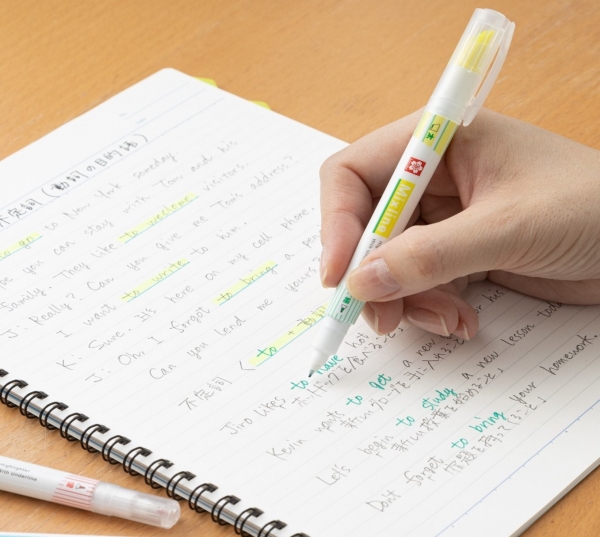 不定詞 (動詞の目的語)
to go to New York someday
you can stay with Tom and his
family. They like to welcome visitors.
J: Really? Can you give me Tom's address?
I want to write to him.
K: Sure. It's here on my cell phone.
J: Oh, I forgot to bring a pen
Can you lend me yours?
不定詞 〈to +
Jiro likes to have hot
ホットドッグを食べること
Kevin wants to get a new
新しいグローブを手に入れること
Let's begin to study a new lesson today
新しい授業を始めること
Don't forget to bring your homework.
宿題を持ってくること
Mixline